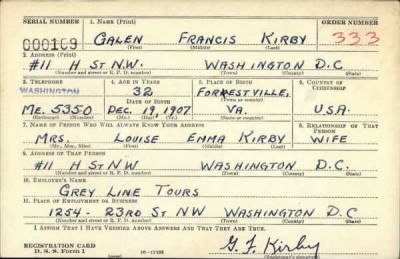 SERIAL NUMBER 1. NAME (Print) ORDER NUMBER
000109 GALEN FRANCIS KIRBY 333
(First) (Middle) (Last)
2. ADDRESS (Print)
#11 H ST N.W. WASHINGTON D.C
(Number and street or R. F. D. number) (Town) (County) (State)
3. TELEPHONE 4. AGE IN YEARS 5. PLACE OF BIRTH 6. COUNTRY OF CITIZENSHIP
WASHINGTON 32 FORRESTVILLE,
DATE OF BIRTH (Town or county)
ME. 5350 DEC. 19, 1907 VA. U.S.A.
(Exchange) (Number) (Mo.) (Day) (Yr.) (State or country)
7. NAME OF PERSON WHO WILL ALWAYS KNOW YOUR ADDRESS 8. RELATIONSHIP OF THAT PERSON
MRS. LOUISE EMMA KIRBY WIFE
(Mr., Mrs., Miss) (First) (Middle) (Last)
9. ADDRESS OF THAT PERSON
#11 H ST NW WASHINGTON D.C.
(Number and street or R. F. D. number) (Town) (County) (State)
10. EMPLOYER'S NAME
GREY LINE TOURS
11. PLACE OF EMPLOYMENT OR BUSINESS
1254 - 23RD ST NW WASHINGTON D.C
(Number and street or R. F. D. number) (Town) (County) (State)
I AFFIRM THAT I HAVE VERIFIED ABOVE ANSWERS AND THAT THEY ARE TRUE.
REGISTRATION CARD
D. S. S. Form 1 G. F. Kirby
(Registrant's signature)